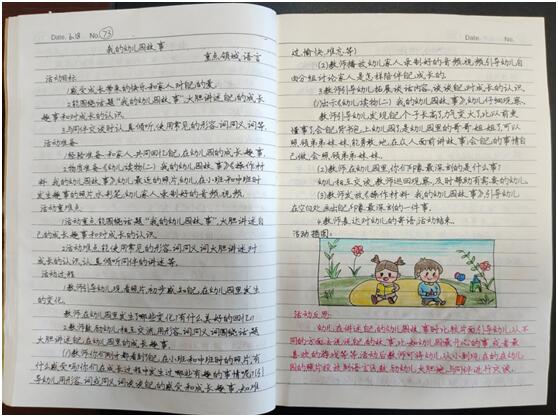 Date. 6.18 No. 73
我的幼儿园故事
重点领域:语言
活动目标
1.感受成长带来的快乐和家人对自己的爱。
2.能围绕话题“我的幼儿园故事”,大胆讲述自己的成长
趣事和对成长的认识。
3.与同伴交谈时认真倾听,使用常见的形容词、同义词等。
活动准备
1.经验准备:和家人共同回忆自己在幼儿园的成长趣事。
2.物质准备:《幼儿读物(二)我的幼儿园故事》《操作材
料 我的幼儿园故事》;幼儿最近的照片,幼儿在小班和中班时
发生趣事的照片,水彩笔,幼儿家人录制好的音频、视频。
活动重难点
1.活动重点:能围绕话题“我的幼儿园故事”,大胆讲述自
己的成长趣事和对成长的认识。
2.活动难点:能使用常见的形容词、同义词大胆讲述对
成长的认识,认真倾听同伴的讲述等。
活动过程
1.教师引导幼儿观看照片,初步感知自己在幼儿园里发生
的变化。
教师:在幼儿园里发生了哪些变化?有什么美好的回忆?
2.教师鼓励幼儿相互交流,用形容词、同义词围绕话题
大胆讲述自己在幼儿园里的成长趣事。
(1)教师:你们刚才都看到自己在小班和中班时的照片,有
什么感受吗?你们在成长过程中发生过哪些有趣的事情呢?(引
导幼儿用形容词或同义词谈谈自己的感受和成长趣事,如难
Date. No.
过、愉快、难忘等)
(2)教师播放幼儿家人录制好的音频、视频,引导幼儿自
由分组讨论家人是怎样陪伴自己成长的。
3.教师引导幼儿拓展谈话内容,谈谈自己对成长的认识。
(1)出示《幼儿读物(二)我的幼儿园故事》,幼儿仔细观察。
教师:幼儿发现自己个子长高了,力气变大了,比以前更
懂事了,会自己背书包上幼儿园,是幼儿园里的哥哥、姐姐了,可以
照顾弟弟、妹妹,能勇敢地在众人面前讲故事,会自己的事情自
己做,会照顾弟弟、妹妹。
(2)教师:在幼儿园里,你印象最深刻的是什么事?
幼儿相互交谈,教师巡回观察,及时帮助有需要的幼儿。
(3)教师发放《操作材料 我的幼儿园故事》,引导幼儿
在空白处画出自己印象最深刻的一件事。
4.教师表达对幼儿的寄语,活动结束。
活动插图:
活动反思:
幼儿在讲述自己的幼儿园故事时比较片面,引导幼儿从不
同的方面去谈谈自己的故事,比如幼儿园最开心的事,或者最
喜欢的游戏等等,活动后教师可将幼儿从小到现在的在幼儿
园的照片投放到语言区,鼓励幼儿大胆地与同伴进行交谈。